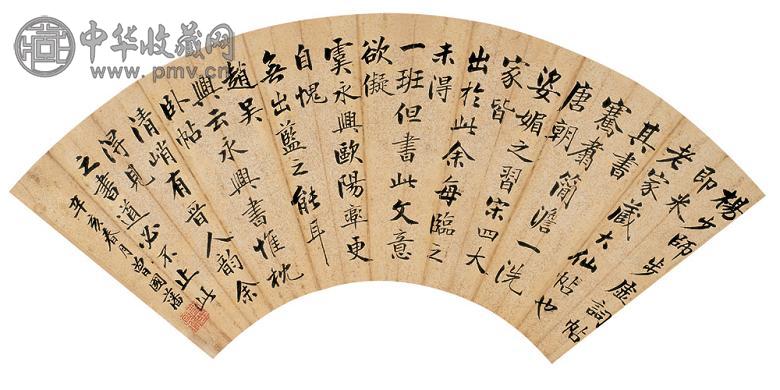 中华收藏网
www.pmv.cn
楊少師步虛詞帖
即米
老家藏大仙帖也
其書
騫翥簡澹一洗
唐朝
姿媚之習宋四大
家皆
出於此余每臨之
未得
一班但書此文意
欲儗
虞永興歐陽率更
自愧
無出藍之能耳
趙吳
興云永興書惟枕
臥帖
清峭有晉人韻余
得見
之書道必不止此
辛亥春月曾國藩